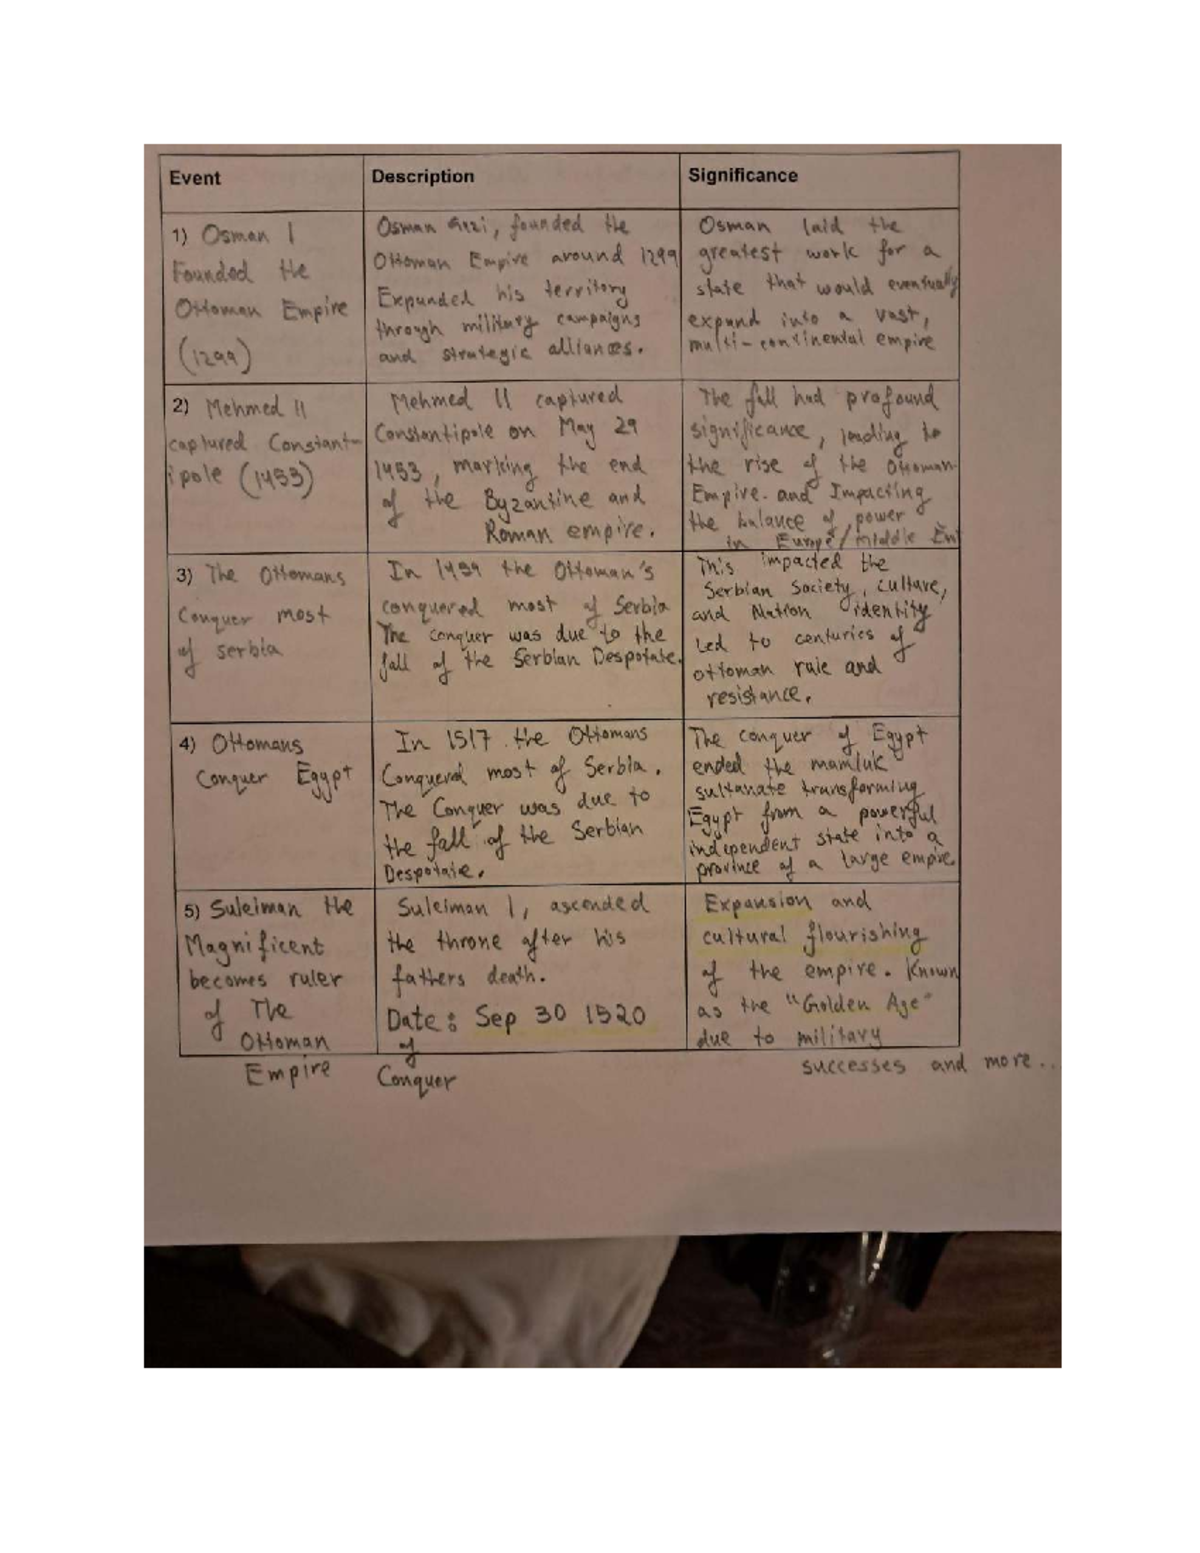 Event
Description
Significance
1) Osman I
Founded the
Ottoman Empire
(1299)
Osman Gezi, founded the
Ottoman Empire around 1299
Expunded his territory
through military campaigns
and strategic alliances.
Osman laid the
greatest work for a
state that would eventually
expund into a vast,
multi-continental empire
2) Mehmed II
captured Constant-
ipole (1453)
Mehmed II captured
Constantipole on May 29
1453, marking the end
of the Byzantine and
Roman empire.
The fall had profound
significance, leading to
the rise of the Ottoman
Empire. and Impacting
the balance of power
in Europe/Middle
3) The Ottomans
Conquer most
of serbia
In 1459 the Ottoman's
conquered most of Serbia
The conquer was due to the
fall of the Serbian Despotate.
This impacted the
Serbian Society, culture,
and Nation identity
Led to centuries of
ottoman rule and
resistance.
4) Ottomans
Conquer Egypt
In 1517 the Ottomans
Conquered most of Serbia.
The Conquer was due to
the fall of the Serbian
Despotate.
The conquer of Egypt
ended the mamluk
sultanate transforming
Egypt from a powerful
independent state into a
province of a large empire
5) Suleiman the
Magnificent
becomes ruler
of The
Ottoman
Empire
Suleiman I, ascended
the throne after his
fathers death.
Date: Sep 30 1520
of
Conquer
Expansion and
cultural flourishing
of the empire. Known
as the "Golden Age"
due to military
successes and more..